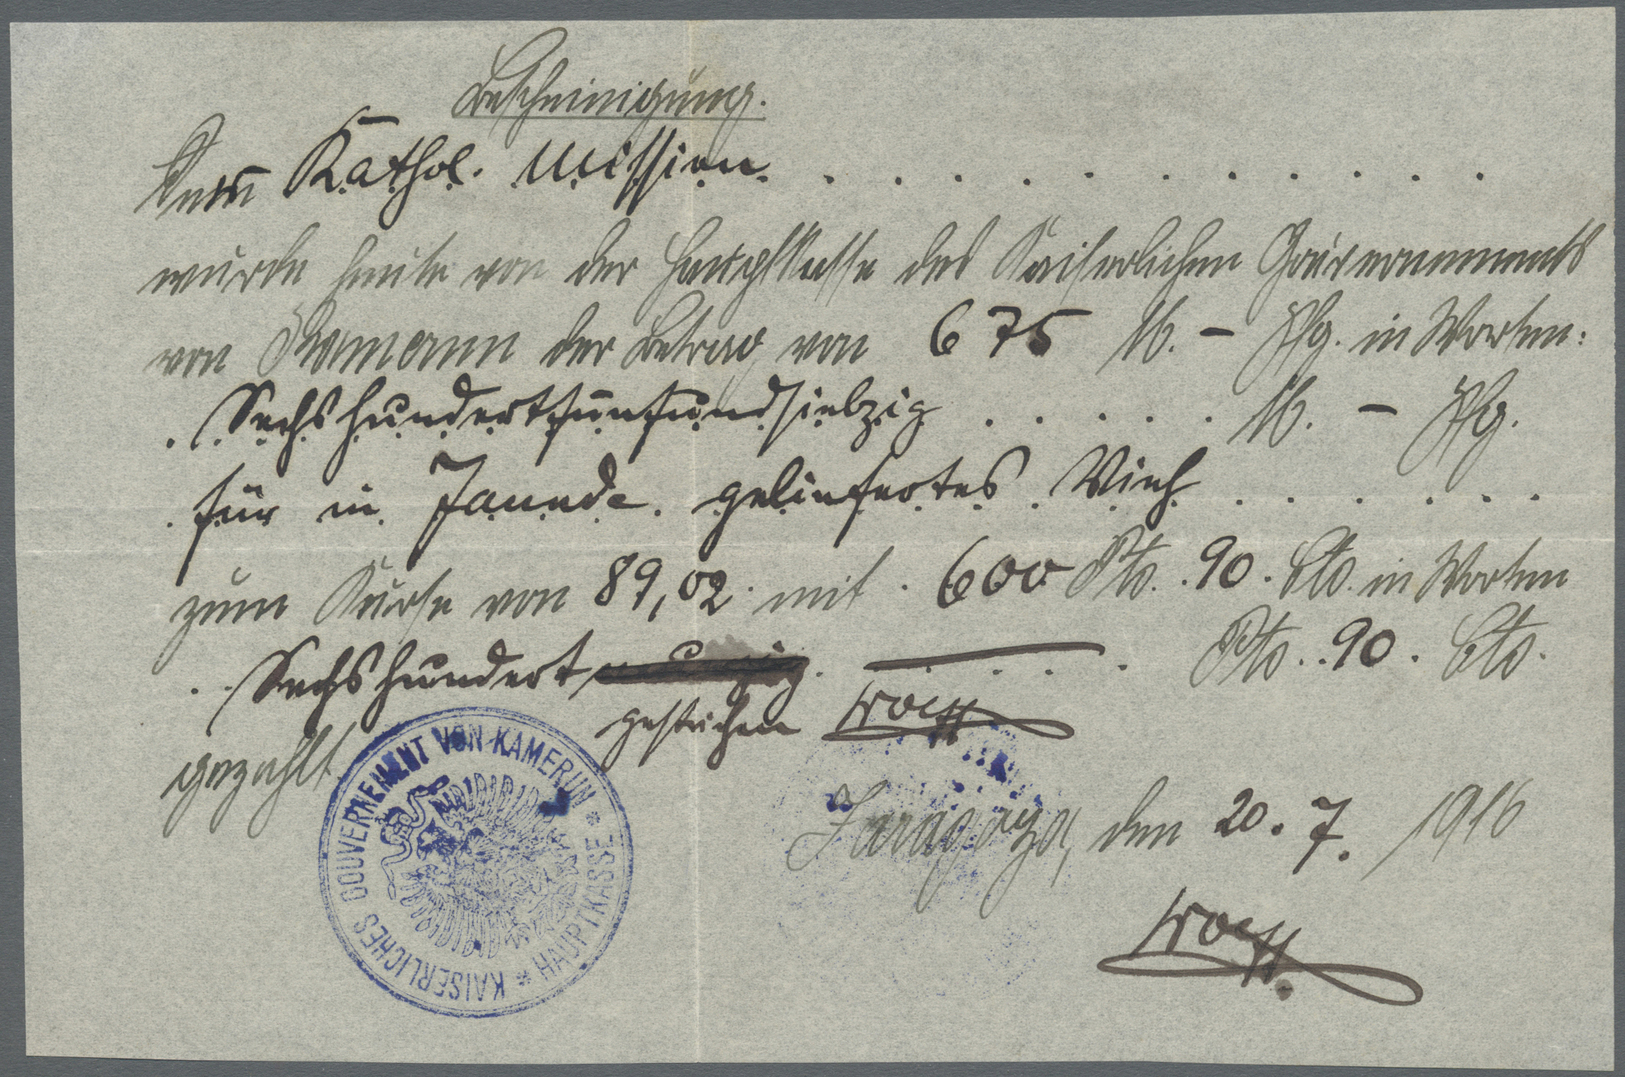 Bescheinigung.
Der Kathol. Mission.
wurde heute von der Hauptkasse des Kaiserlichen Gouvernements
von Kamerun der Betrag von 675 M. – Pfg. in Worten:
Sechshundertfünfundsiebzig M. – Pfg.
für in Jaunde geliefertes Vieh
zum Kurse von 89,02 mit 600 Pts. 90 Cts. in Worten
Sechshundert Pts. 90 Cts.
gestrichen
gezahlt.
KAISERLICHES GOUVERNEMENT VON KAMERUN * HAUPTKASSE *
Zaragoza, den 20. 7. 1916